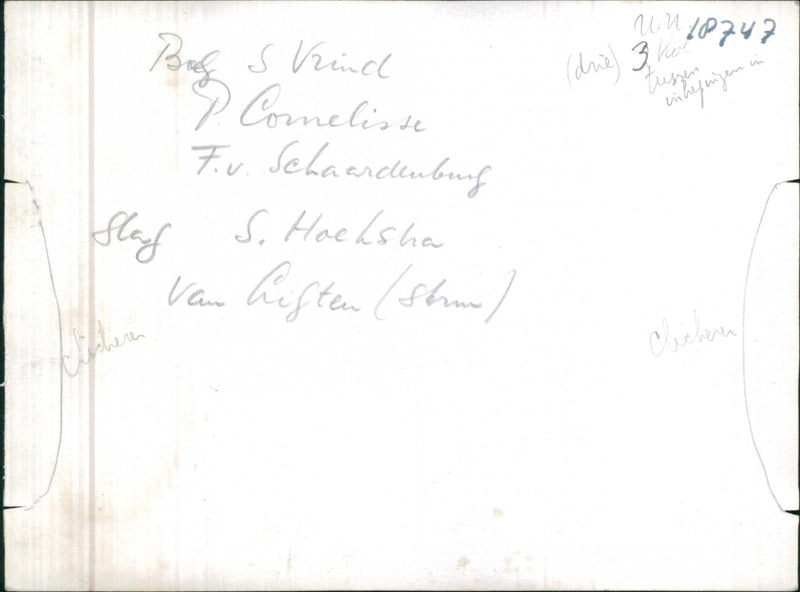 U.U. 18747
(drie) 3 Kol
tussen
inbegrepen in
Boeg S Vrind
P. Cornelisse
F. v. Schaardenburg
Slag S. Hoekstra
Van (Stuur)
clicheren
clicheren